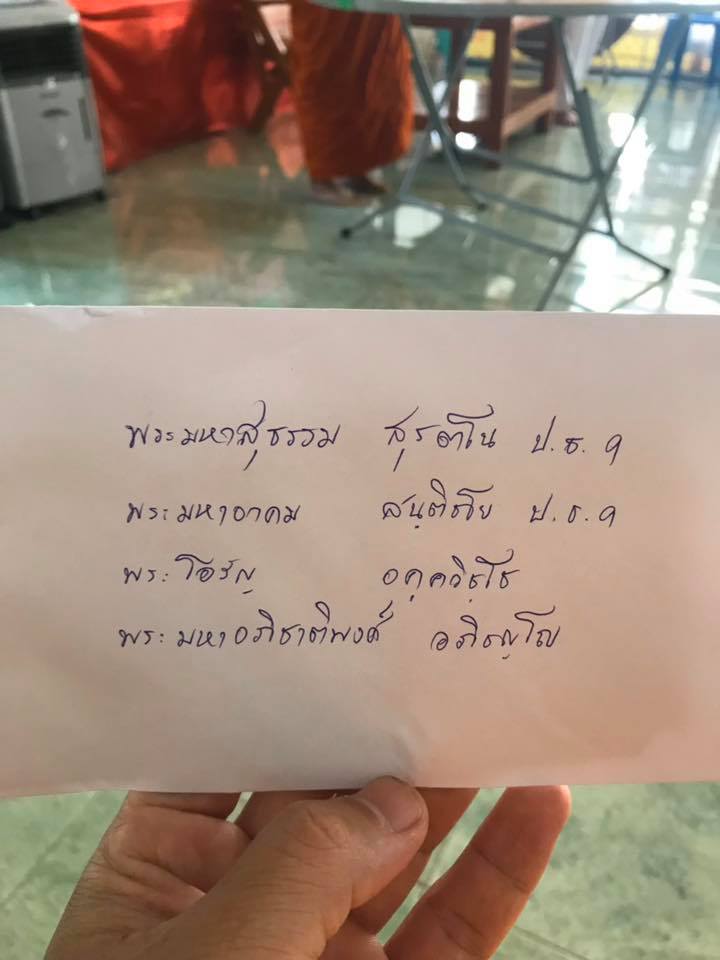 พระมหาสุธรรม สุรตาโน ป.ธ. ๑
พระมหาอาคม สนฺติชโย ป.ธ.๑
พระโอรัญ อคฺควิชฺโช
พระมหาอภิชาติพงศ์ อภิญฺโญ